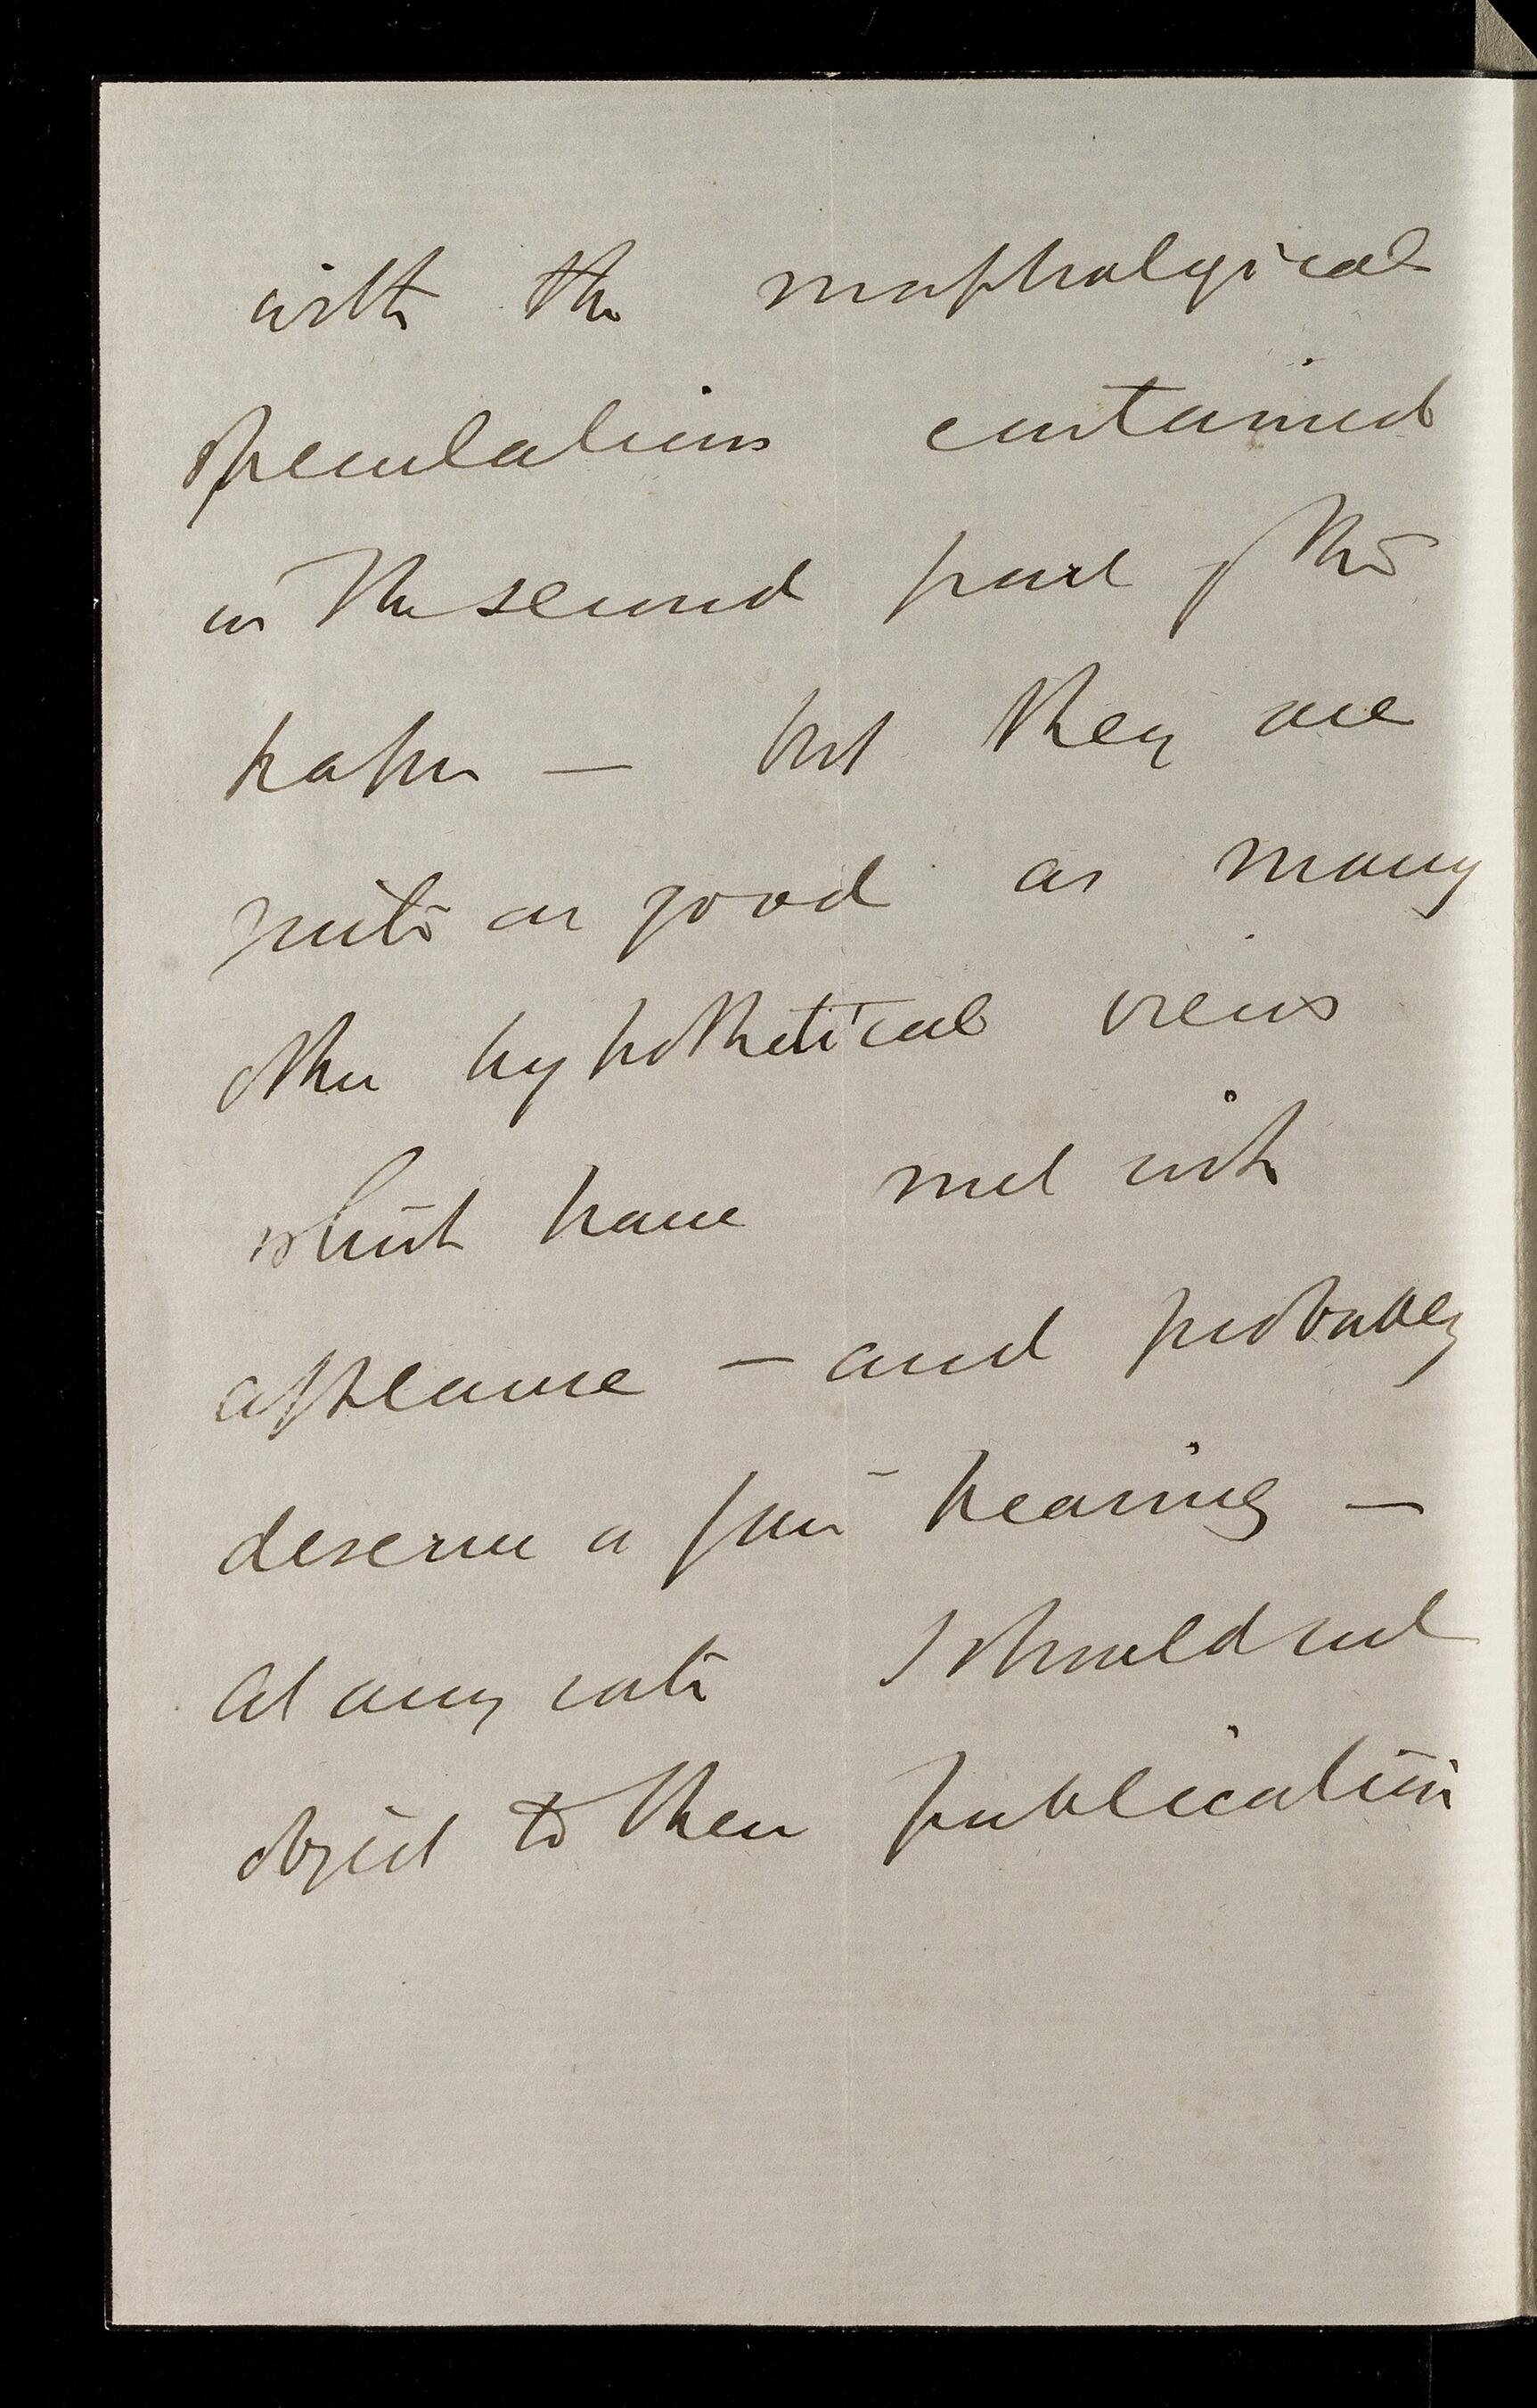 with the morphological
speculations contained
in the second part of the
paper — but they are
quite as good as many
other hypothetical views
which have met with
applause — and probably
deserve a fair hearing —
at any rate I should not
object to their publication